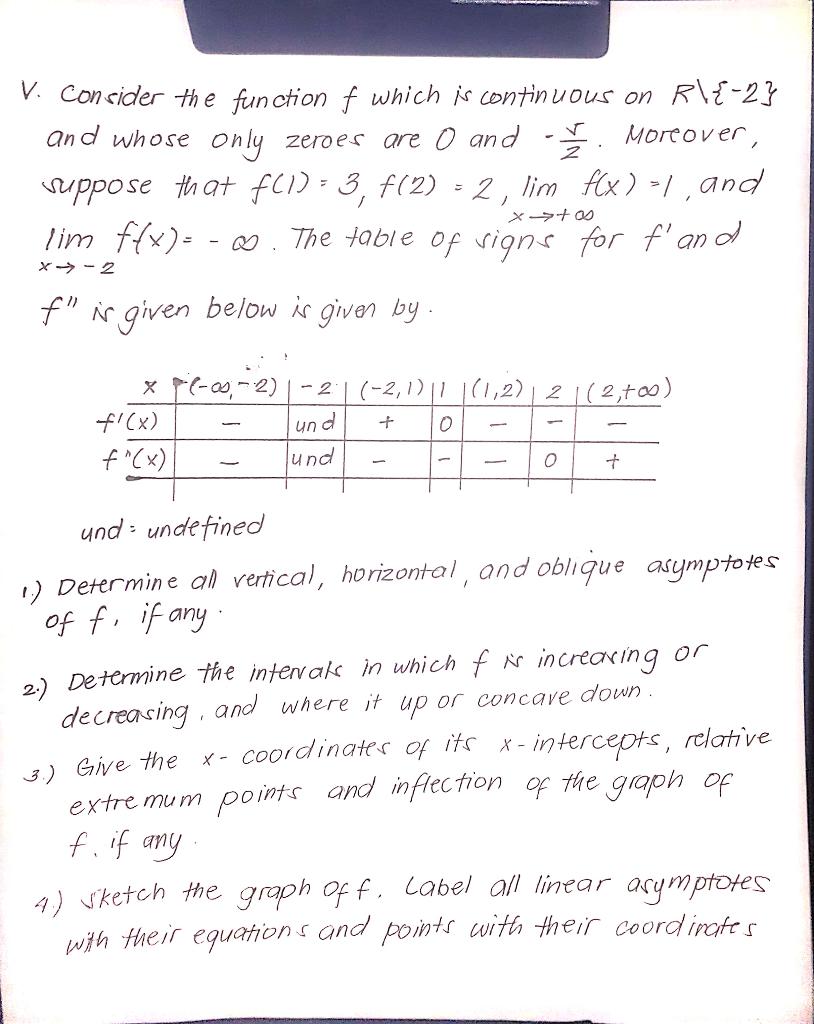 V. Consider the function f which is continuous on R\{-2}
and whose only zeroes are 0 and -5/2. Moreover,
suppose that f(1) = 3, f(2) = 2, lim f(x) = 1, and
x→+∞
lim f(x) = -∞. The table of signs for f' and
x→-2
f" is given below is given by.
x (-∞,-2) | -2 | (-2,1) | 1 | (1,2) | 2 | (2,+∞)
f'(x) | - | und | + | 0 | - | - | -
f"(x) | - | und | - | - | - | 0 | +
und = undefined
1.) Determine all vertical, horizontal, and oblique asymptotes
of f, if any.
2.) Determine the intervals in which f is increasing or
decreasing, and where it up or concave down.
3.) Give the x-coordinates of its x-intercepts, relative
extremum points and inflection of the graph of
f, if any.
4.) Sketch the graph of f. Label all linear asymptotes
with their equations and points with their coordinates